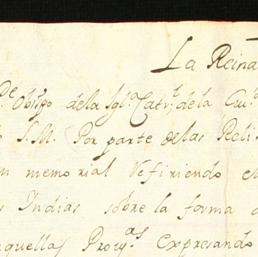 La Reina
Obispo dela Igl.ª Catr.l dela Ciu.
S.M. Por parte delas Reli
memorial refiriendo
Indias sobre la forma
aquellas Prov.as expresando